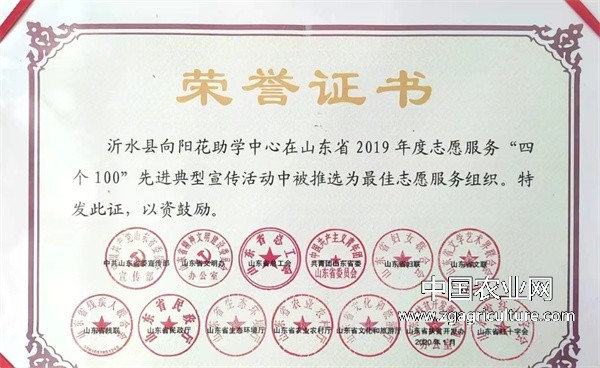 荣誉证书
沂水县向阳花助学中心在山东省2019年度志愿服务“四
个100”先进典型宣传活动中被推选为最佳志愿服务组织。特
发此证，以资鼓励。
中共山东省委宣传部 山东省文明办 山东省总工会 共青团山东省委 山东省妇联 山东省文联
宣传部 办公室 山东省委员会
山东省残联 山东省民政厅 山东省生态环境厅 山东省农业农村厅 山东省文化和旅游厅 山东省扶贫开发办 山东省红十字会
2020年1月
中国农业网
www.zgagriculture.com